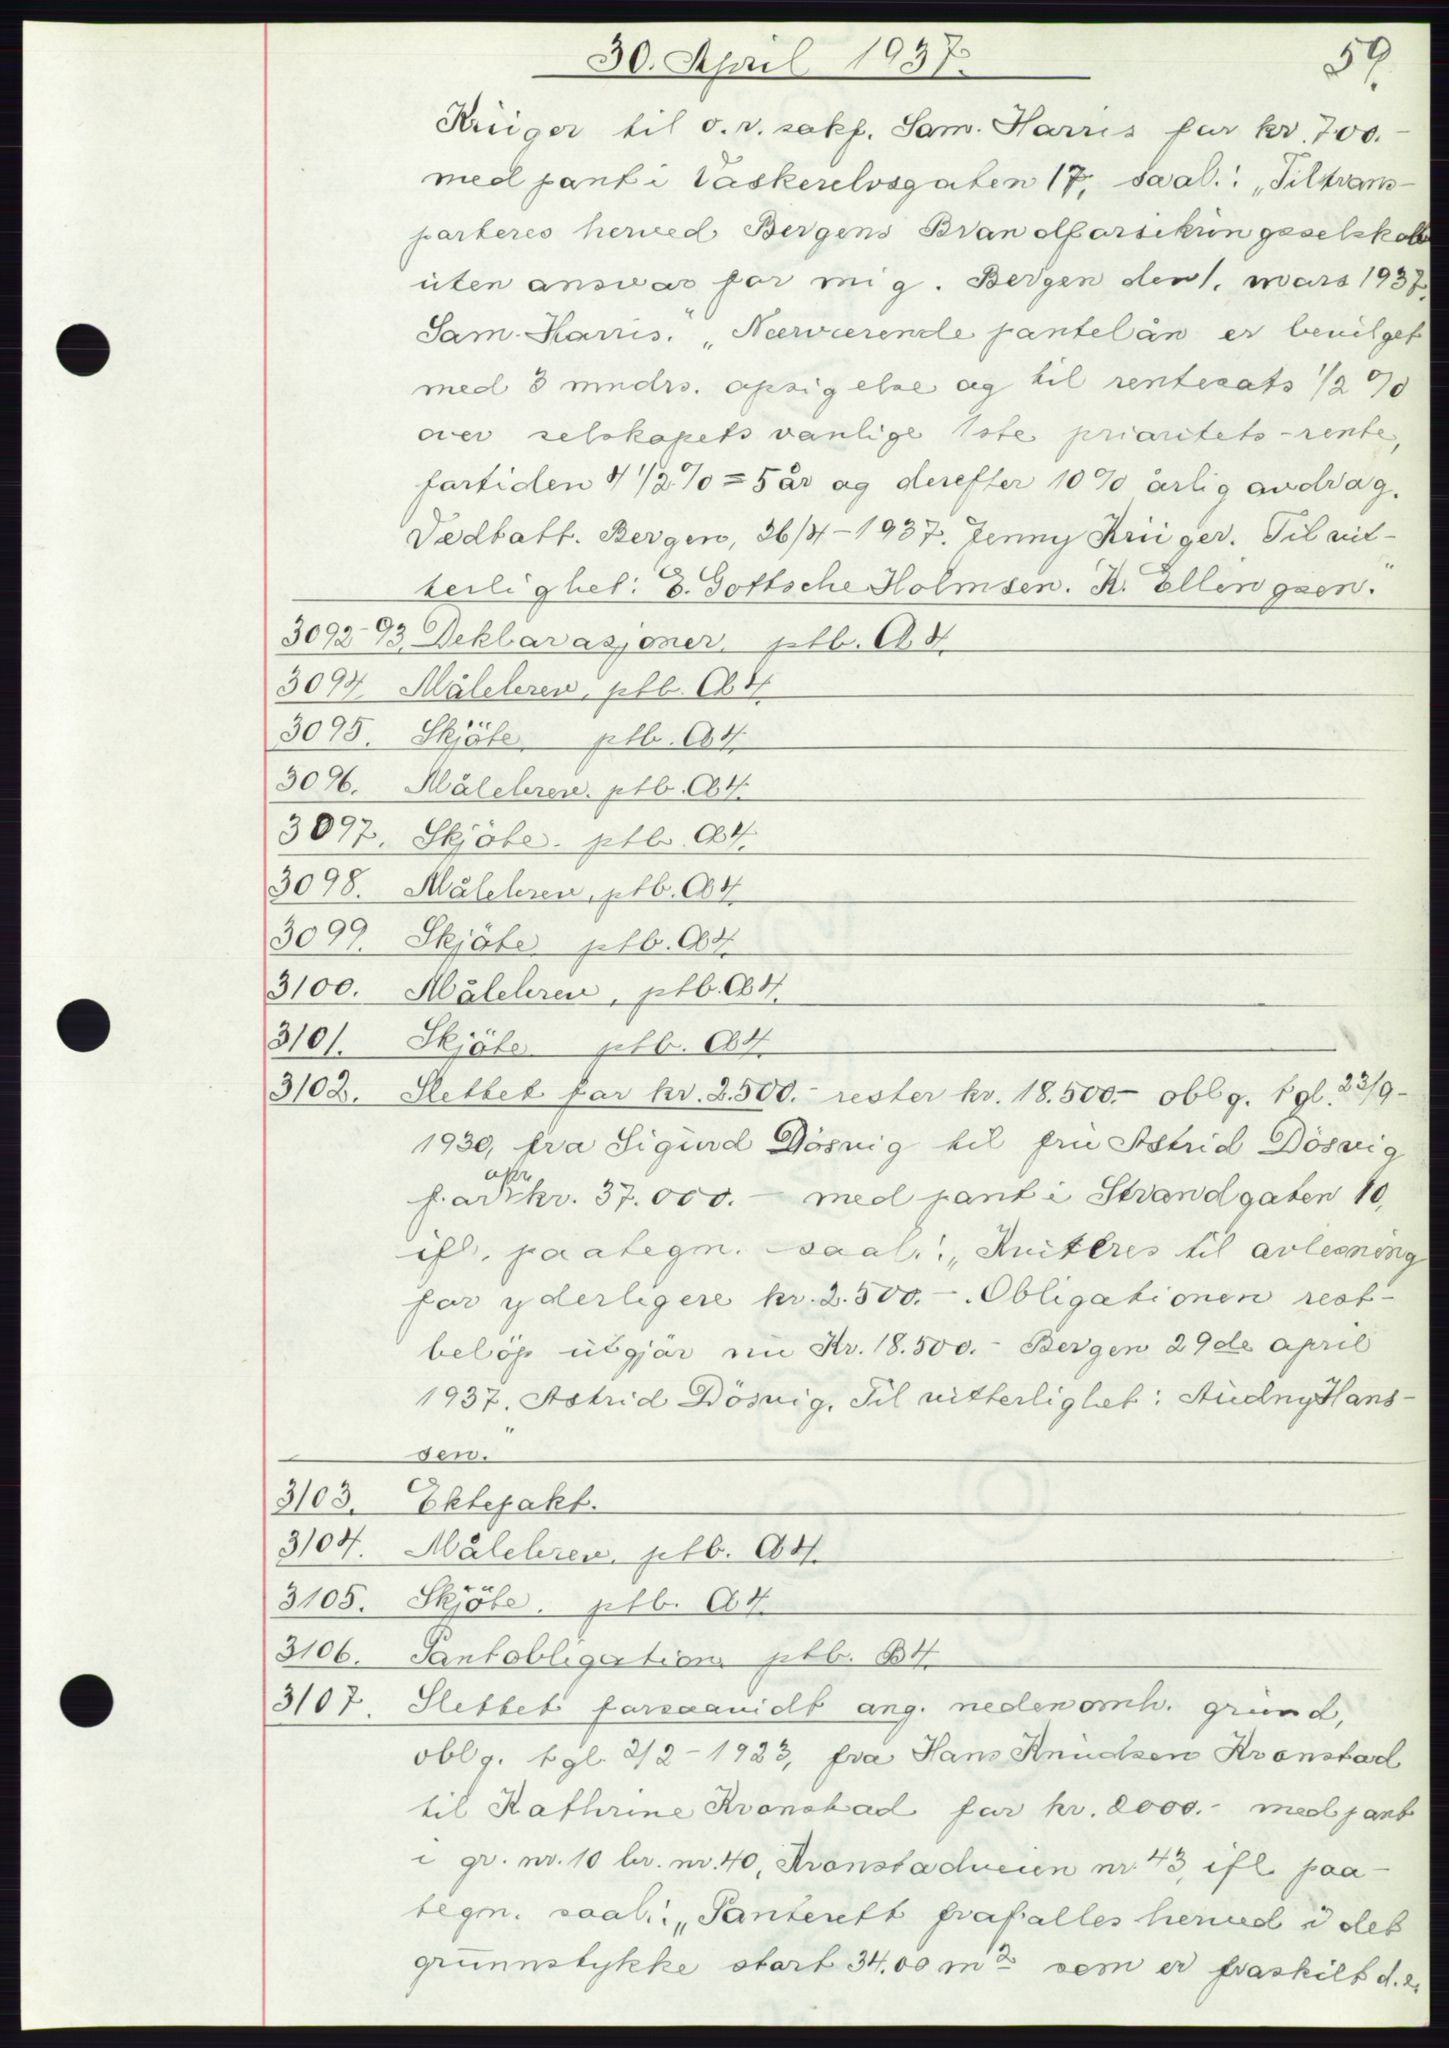 30. April 1937.
59.
Krüger til o.r. sakf. Sam. Harris for kr. 700.-
med pant i Vaskerelvsgaten 17, saal.: „Tiltrans-
porteres herved Bergens Brandforsikringsselskab
uten ansvar for mig. Bergen den 1. mars 1937.
Sam. Harris." „Nærværende pantelån er bevilget
med 3 mndrs. opsigelse og til rentesats 1/2 %
over selskapets vanlige 1ste prioritets-rente,
fortiden 4 1/2 % = 5 år og derefter 10 % årlig avdrag.
Vedtatt. Bergen, 26/4-1937. Jenny Krüger. Til vit-
terlighet: E. Gottsche Holmsen. K. Ellingsen."
3092-93. Deklarasjoner. ptb. A 4.
3094. Målebrev, ptb. A 4.
3095. Skjöte. ptb. A 4.
3096. Målebrev. ptb. A 4.
3097. Skjöte. ptb. A 4.
3098. Målebrev, ptb. A 4.
3099. Skjöte. ptb. A 4.
3100. Målebrev, ptb. A 4.
3101. Skjöte. ptb. A 4.
3102. Slettet for kr. 2.500.- rester kr. 18.500.- oblg. tgl. 23/9-
1930, fra Sigurd Dösvig til fru Astrid Dösvig
opr.
for kr. 37.000.- med pant i Strandgaten 10,
ifl. paategn. saal.: „Kvitteres til avlesning
for yderligere kr. 2.500.-. Obligationen rest-
belöp utgjör nu Kr. 18.500.- Bergen 29de april
1937. Astrid Dösvig. Til vitterlighet: Audny Hans-
sen."
3103. Ektepakt.
3104. Målebrev. ptb. A 4.
3105. Skjöte. ptb. A 4.
3106. Pantobligation ptb. B 4.
3107. Slettet forsaavidt ang. nedenomh. grund,
oblg. tgl. 2/2-1923, fra Hans Knudsen Kronstad
til Kathrine Kronstad for kr. 2000.- med pant
i gr. nr. 10 br. nr. 40, Kronstadveien nr. 43, ifl. paa-
tegn. saal.: „Panterett frafalles herved i det
grunnstykke stort 34.00 m2 som er fraskilt d.e.